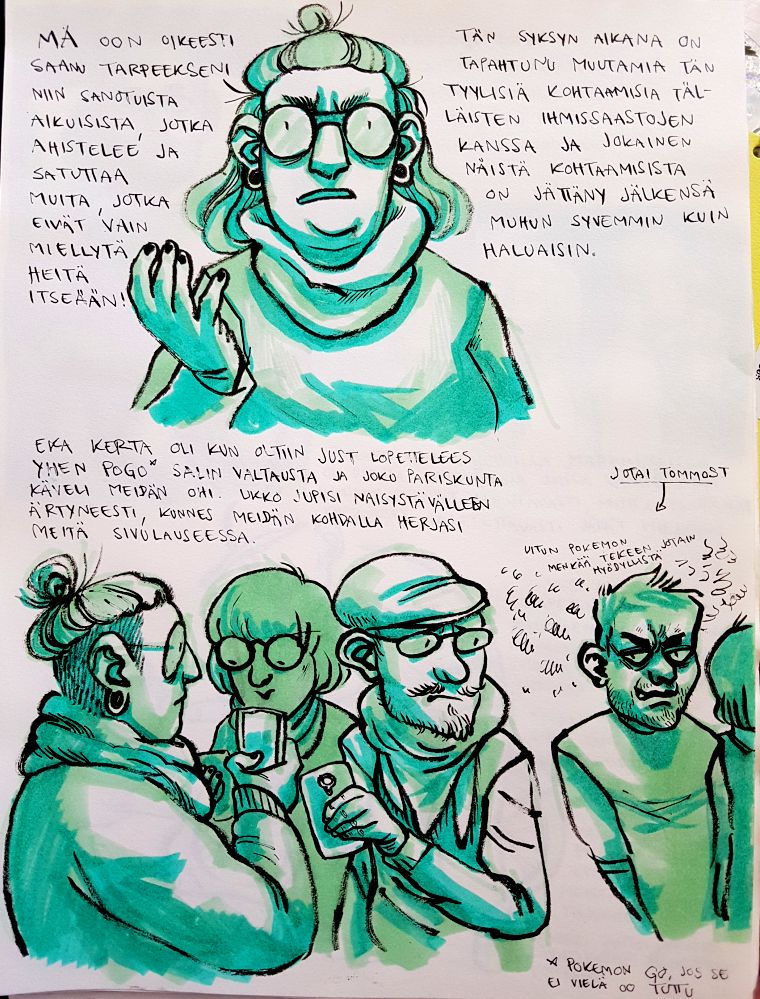 MÄ OON OIKEESTI
SAANU TARPEEKSENI
NIIN SANOTUISTA
AIKUISISTA, JOTKA
AHISTELEE JA
SATUTTAA
MUITA, JOTKA
EIVÄT VAIN
MIELLYTÄ
HEITÄ
ITSEÄÄN!
TÄN SYKSYN AIKANA ON
TAPAHTUNU MUUTAMIA TÄN
TYYLISIÄ KOHTAAMISIA TÄL-
LÄISTEN IHMISSAASTOJEN
KANSSA JA JOKAINEN
NÄISTÄ KOHTAAMISISTA
ON JÄTTÄNY JÄLKENSÄ
MUHUN SYVEMMIN KUIN
HALUAISIN.
EKA KERTA OLI KUN OLTIIN JUST LOPETTELEES
YHEN POGO* SALIN VALTAUSTA JA JOKU PARISKUNTA
KÄVELI MEIDÄN OHI. UKKO JUPISI NAISYSTÄVÄLLEEN
ÄRTYNEESTI, KUNNES MEIDÄN KOHDALLA HERJASI
MEITÄ SIVULAUSEESSA.
JOTAI TOMMOST
VITUN POKEMON
MENKÄÄ TEKEEN JOTAIN
HYÖDYLLISTÄ
* POKEMON GO, JOS SE
EI VIELÄ OO TUTTU